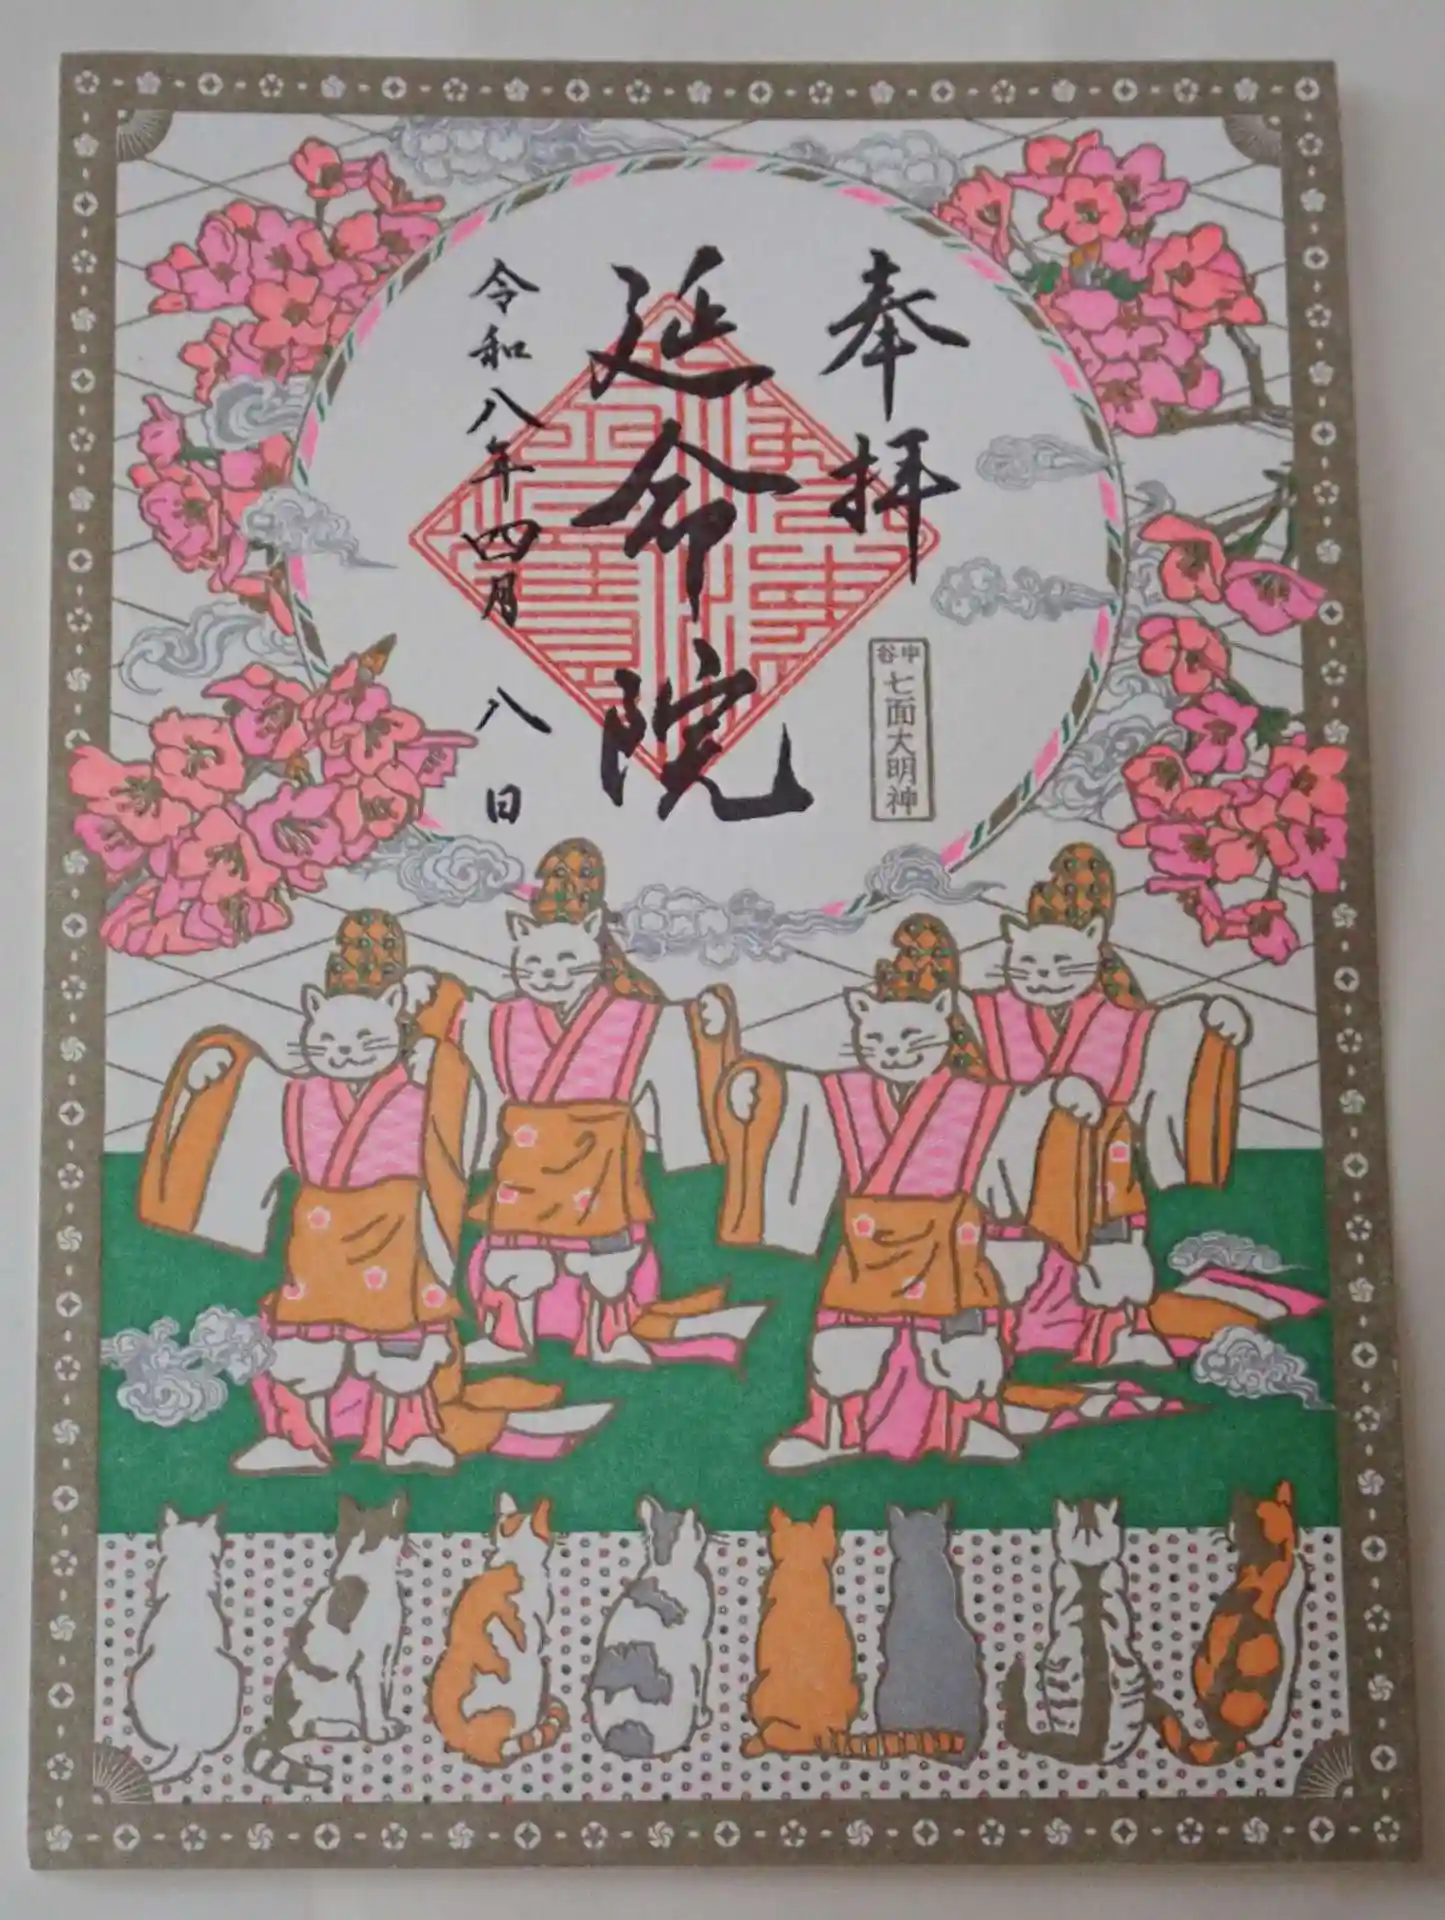 奉拝
中谷
七面大明神
延命院
令和八年四月八日